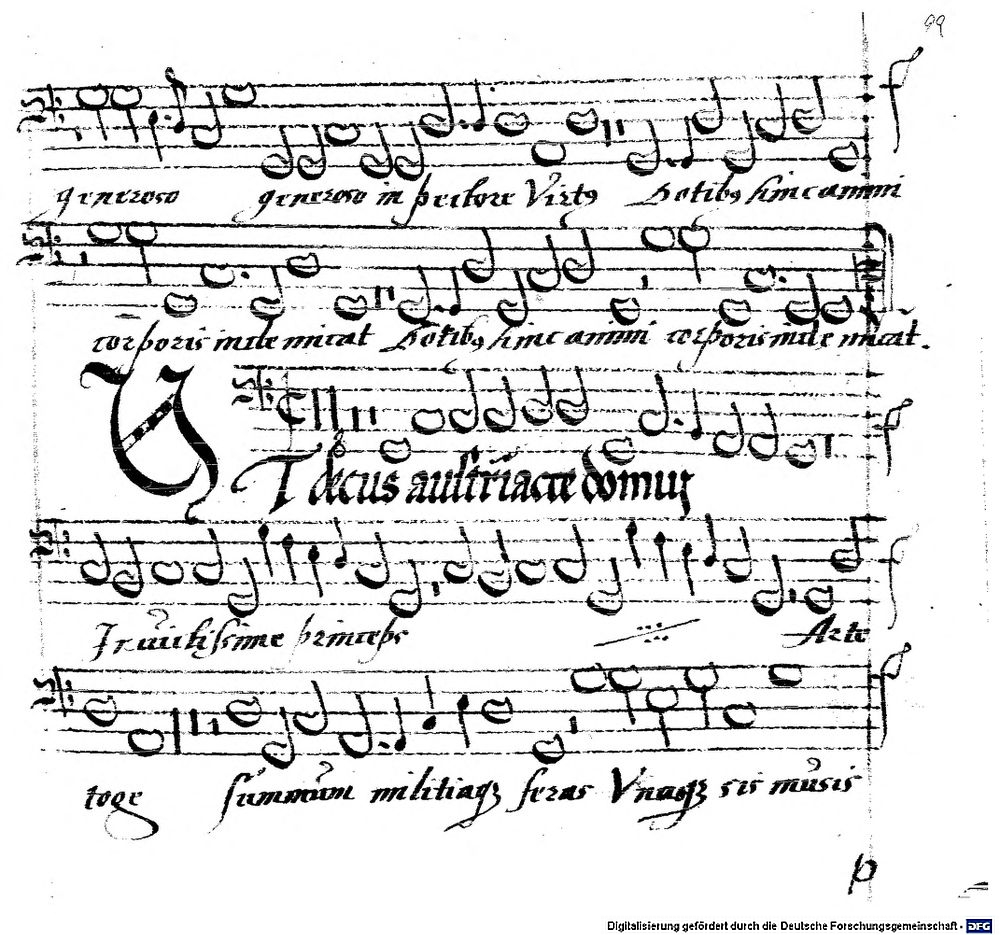 99
generoso generoso in pectore Virtꝰ Dotibꝰ hinc animi
corporis inde micat Dotibꝰ hinc animi corporis inde micat.
VT decus austriacte domus
Invictissime princeps Arte
toge summum militiaqꝫ feras Vnaqꝫ sis musis
p
Digitalisierung gefördert durch die Deutsche Forschungsgemeinschaft - DFG